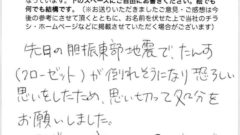 なっています。下のスペースにご自由にお書きください。絵でも
何でも結構です。(※お送りいただきましたご意見・ご感想は今
後の参考にさせて頂くとともに、お名前を伏せた上で当社のチラ
シ・ホームページなどに掲載させていただく場合がございます)
先日の胆振東部地震で、たんす
(クローゼット)が倒れそうになり恐ろしい
思いをしたため、思い切って処分を
お願いしました。